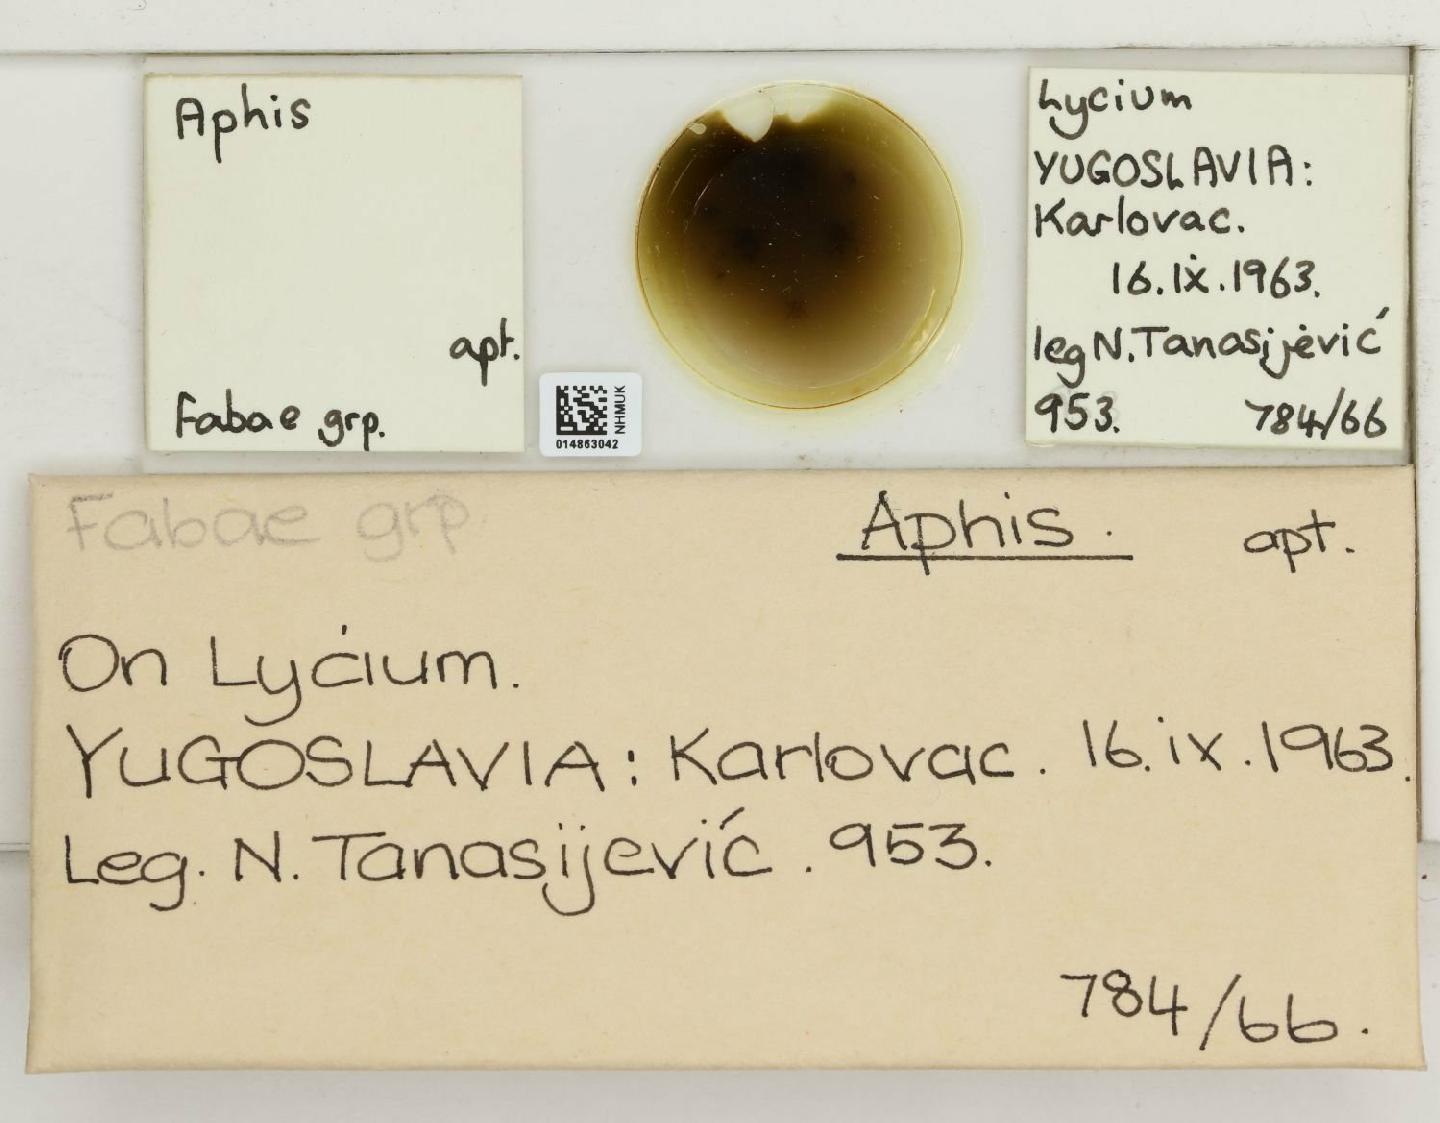 Aphis
apt.
Fabae grp.
NHMUK
014863042
Lycium
YUGOSLAVIA:
Karlovac.
16.ix.1963.
leg N. Tanasijević
953.
784/66
Fabae grp
Aphis. apt.
On Lycium.
YUGOSLAVIA: Karlovac. 16.ix.1963.
Leg. N. Tanasijević. 953.
784/66.